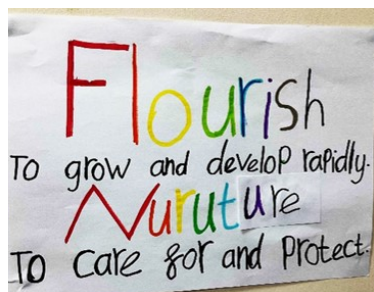 Flourish
To grow and develop rapidly.
Nuruture
To care for and Protect.